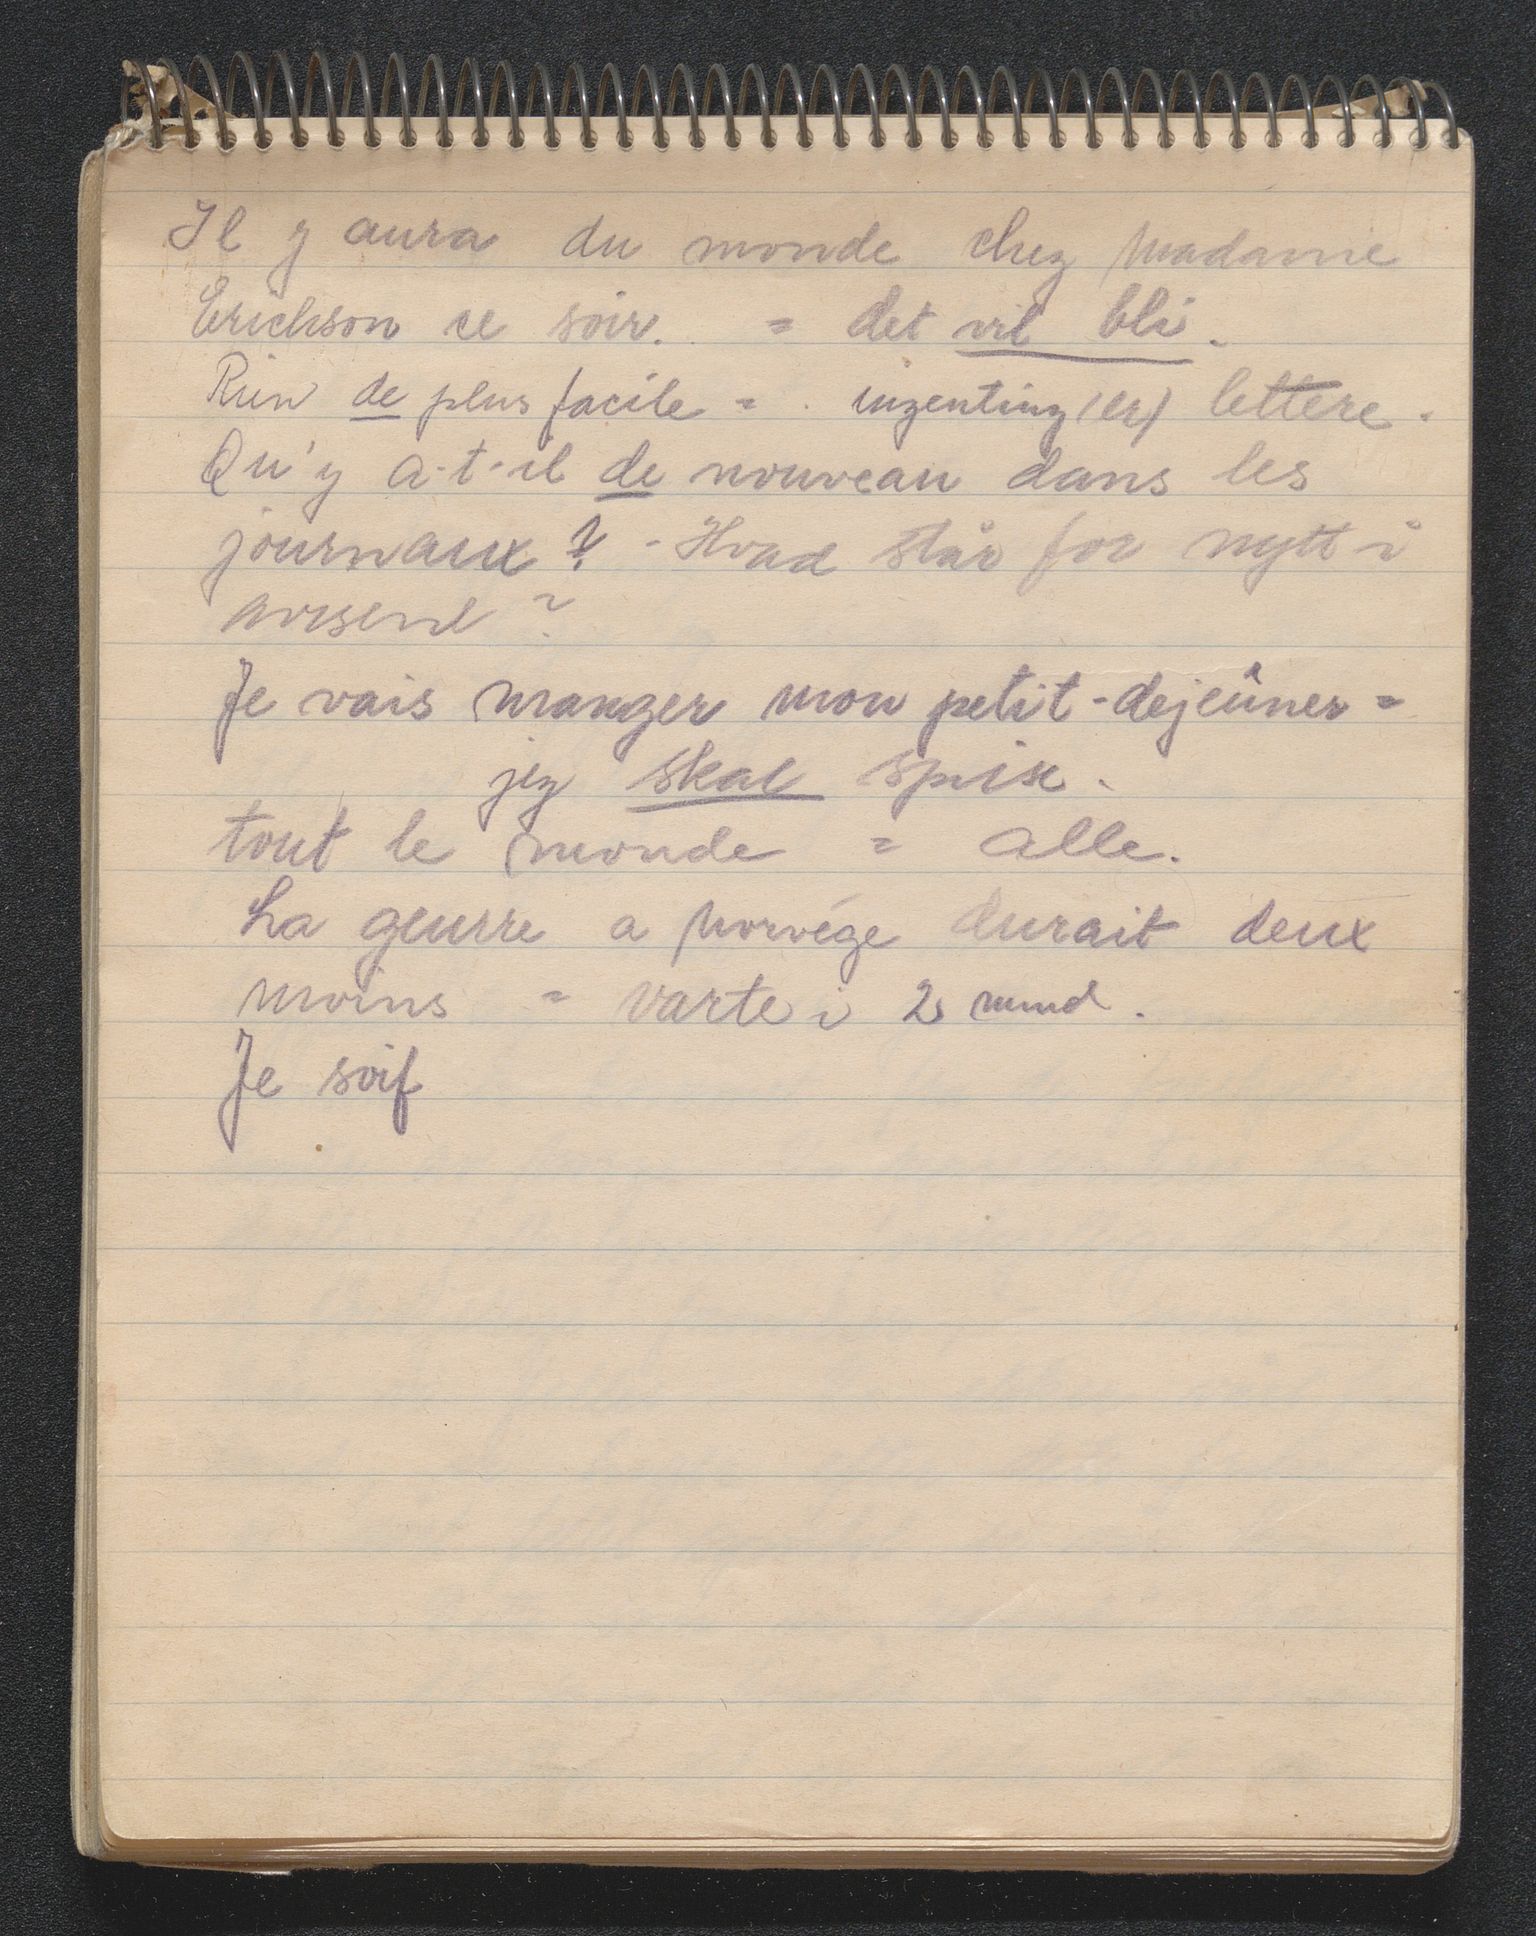 Il y aura du monde chez Madame
Erichson ce soir. = det vil bli.
Rien de plus facile = . ingenting (er) lettere.
Qu'y a-t-il de nouveau dans les
journaux? - Hvad står for nytt i
avisene?
Je vais manger mon petit-dejeûner =
jeg skal spise.
tout le monde = alle.
La geurre a Norvége durait deux
moins = varte i 2 mnd.
Je soif